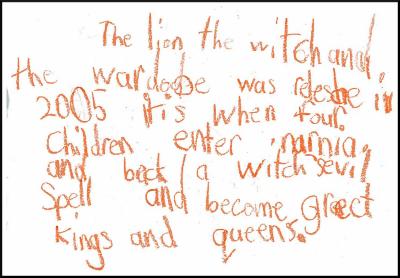 The lion the witch and
the wardobe was relesde in
2005 it is when four
children enter narnia
and back a witchs evil
Spell and become great
kings and queens.